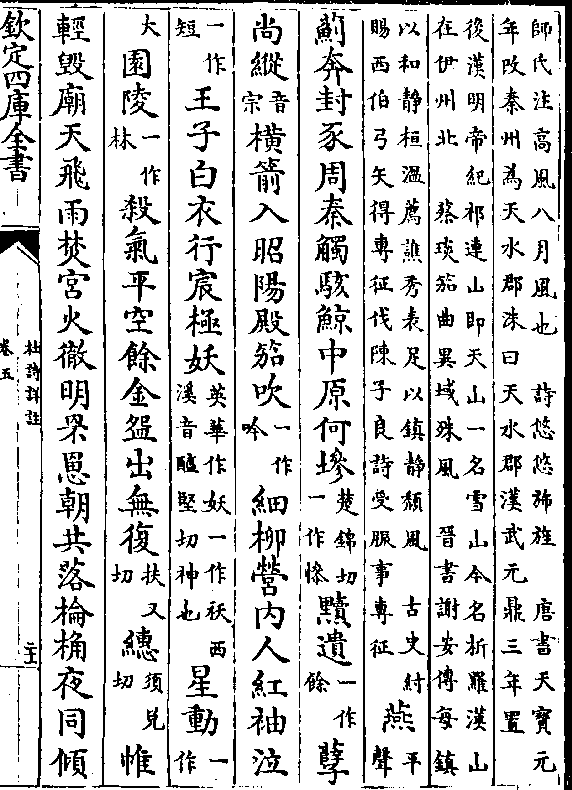 師氏注高風八月風也 詩悠悠斾旌 唐書天寶元
年改秦州為天水郡洙曰天水郡漢武元鼎三年置
後漢明帝紀祁連山即天山一名雪山今名折羅漢山
在伊州北 蔡琰笳曲異域殊風 晉書謝安傳每鎮
以和静桓溫薦譙秀表足以鎮静頽風 古史紂
賜西伯弓矢得專征伐陳子良詩受脤事專征
燕平聲
薊奔封豕周秦觸駭鯨中原何墋楚錦切一作慘黷遺一作餘孽
尚縱音宗橫箭入昭陽殿笳吹一作吟細柳營内人紅袖泣
一作短王子白衣行宸極妖英華作妖一作祅西溪音醯堅切神也星動一作
大園陵一作林殺氣平空餘金盌出無復扶又切繐須兌切帷
輕毀廟天飛雨焚宮火徹明罘罳朝共落棆桷夜同傾
欽定四庫全書
杜詩詳註
卷五